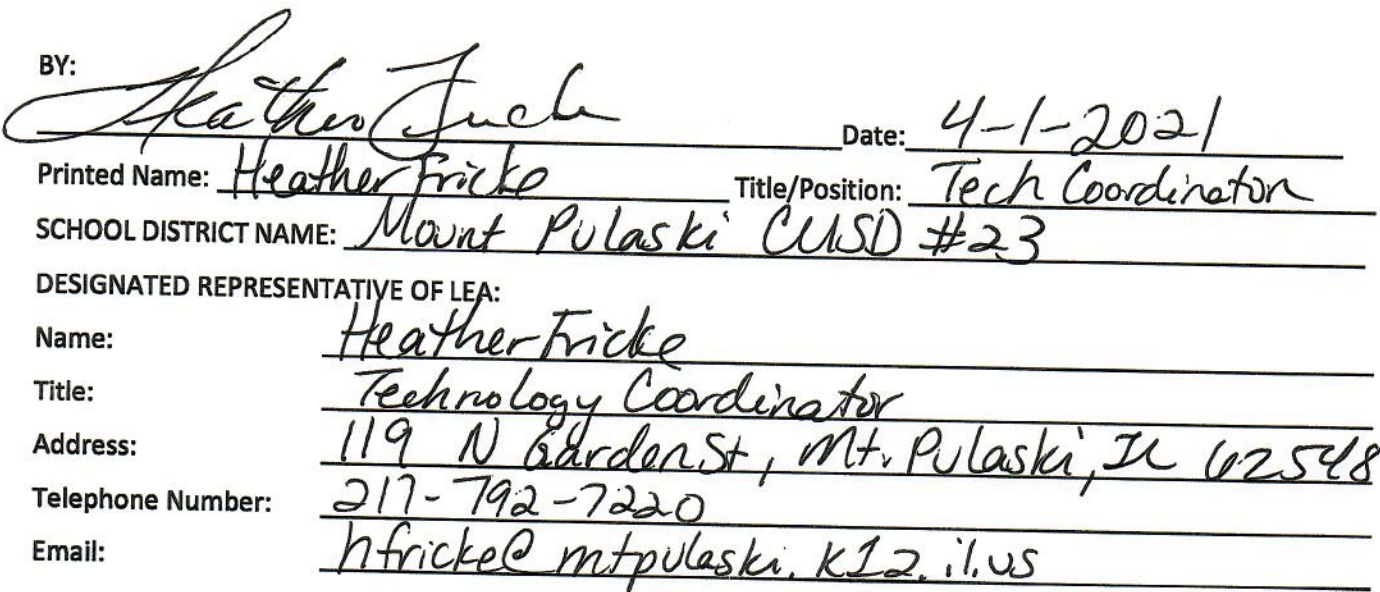 BY: Heather Fricke
Date: 4-1-2021
Printed Name: Heather Fricke Title/Position: Tech Coordinator
SCHOOL DISTRICT NAME: Mount Pulaski CUSD #23
DESIGNATED REPRESENTATIVE OF LEA:
Name: Heather Fricke
Title: Technology Coordinator
Address: 119 N Garden St, Mt. Pulaski, IL 62548
Telephone Number: 217-792-7220
Email: hfricke@mtpulaski.k12.il.us